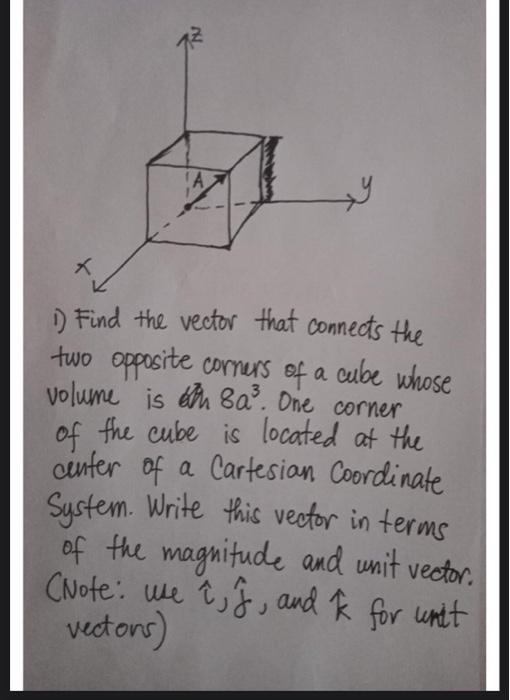 z
A
y
x
i) Find the vector that connects the
two opposite corners of a cube whose
volume is 8a³. One corner
of the cube is located at the
center of a Cartesian Coordinate
System. Write this vector in terms
of the magnitude and unit vector.
(Note: use î, ĵ, and k̂ for unit
vectors)